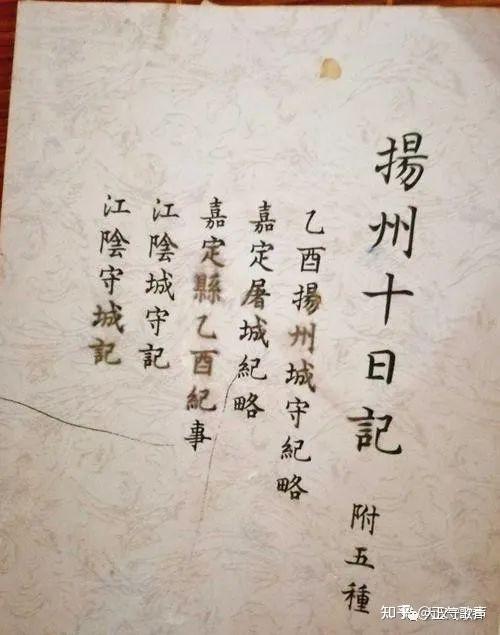 揚州十日記 附五種
乙酉揚州城守紀略
嘉定屠城紀略
嘉定縣乙酉紀事
江陰城守記
江陰守城記
知乎